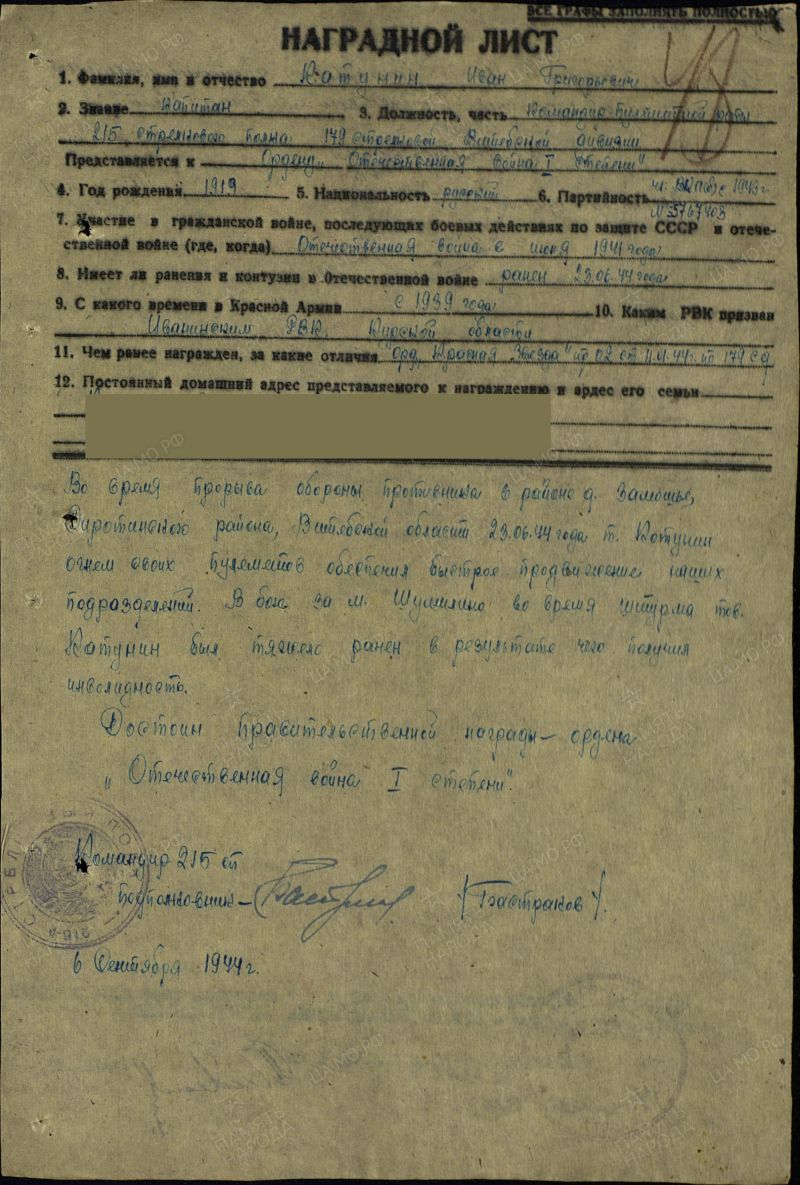 ВСЕ ГРАФЫ ЗАПОЛНЯТЬ ПОЛНОСТЬЮ
НАГРАДНОЙ ЛИСТ
1. Фамилия, имя и отчество Катунин Иван Григорьевич
2. Звание Капитан 3. Должность, часть Командир пулеметной роты
215 стрелкового полка 179 стрелковой Витебской дивизии
Представляется к Ордену „Отечественная война I степени"
4. Год рождения 1919 5. Национальность русский 6. Партийность чл. ВКП(б) с 1943 г.
7. Участие в гражданской войне, последующих боевых действиях по защите СССР и отече-
ственной войне (где, когда) Отечественная война с июля 1941 года
8. Имеет ли ранения и контузии в Отечественной войне ранен 23.06.44 года
9. С какого времени в Красной Армии с 1939 года 10. Каким РВК призван
Иванинским РВК, Курской области
11. Чем ранее награжден, за какие отличия "орд. Красная Звезда" пр 02 от 179 сд
12. Постоянный домашний адрес представляемого к награждению и ардес его семьи
Во время прорыва обороны противника в районе д. Замошье,
Сиротинского района, Витебской области 23.06.44 года т. Катунин
огнем своих пулеметов обеспечил быстрое продвижение наших
подразделений. В боях за м. Шумилино во время штурма тов.
Катунин был тяжело ранен в результате чего получил
инвалидность.
Достоин правительственной награды – ордена
„Отечественная война I степени".
Командир 215 сп
подполковник – /Бастраков/.
6 Сентября 1944 г.